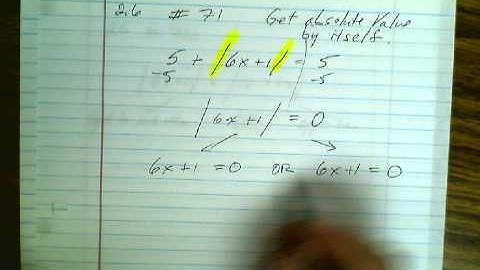 2.6 # 71 Get absolute value
by itself.
5 + |6x+1| = 5
-5 -5
|6x+1| = 0
6x+1 = 0 OR 6x+1 = 0